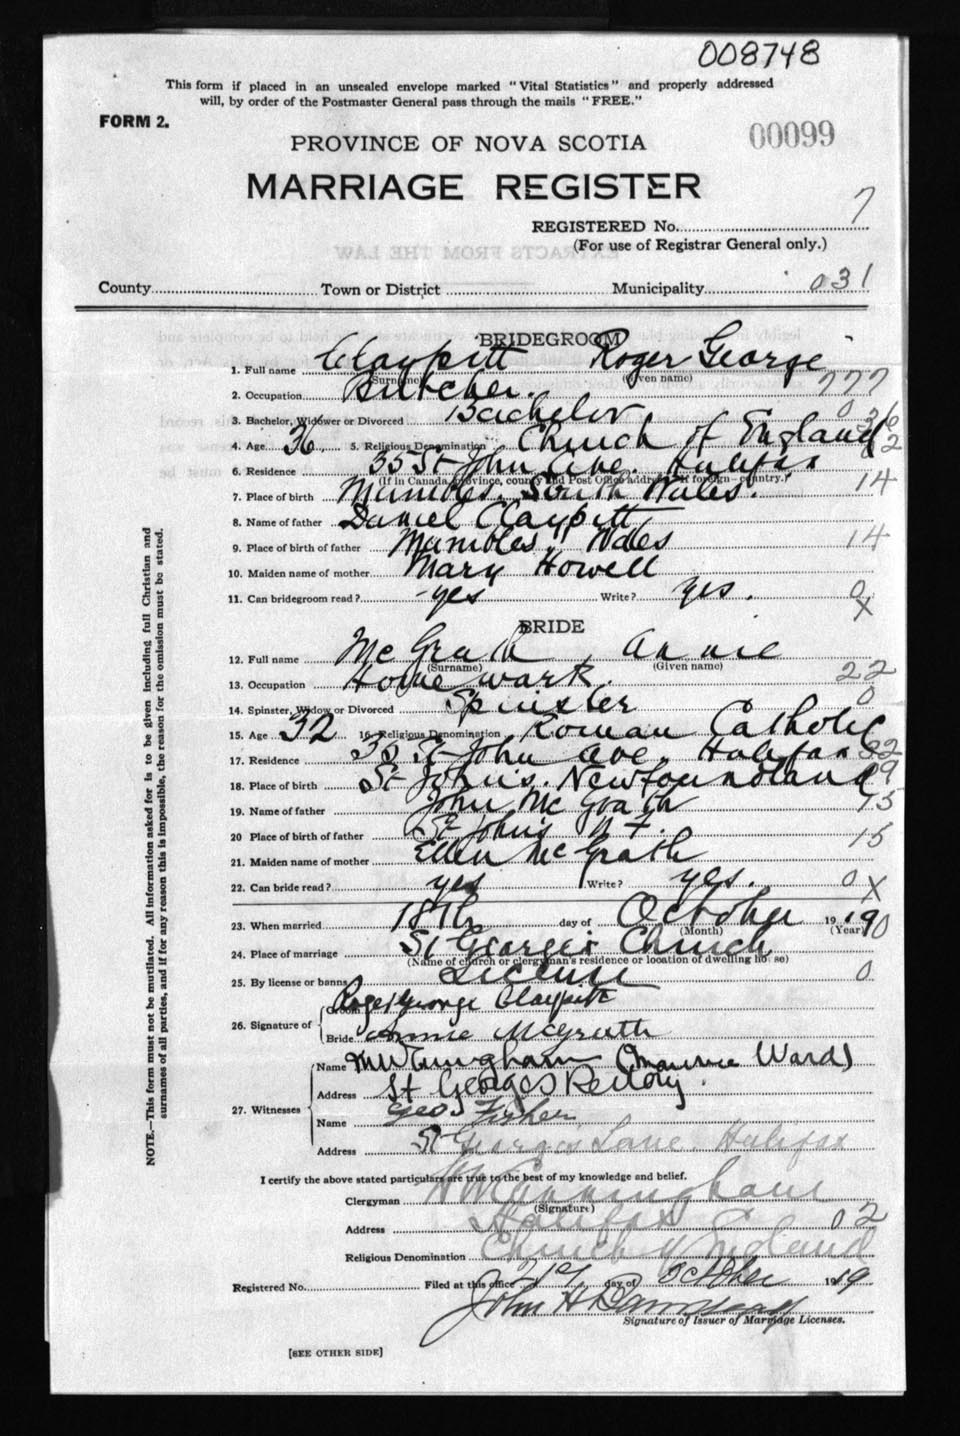 008748
This form if placed in an unsealed envelope marked "Vital Statistics" and properly addressed
will, by order of the Postmaster General pass through the mails "FREE."
FORM 2.
00099
PROVINCE OF NOVA SCOTIA
MARRIAGE REGISTER
REGISTERED No. 7
(For use of Registrar General only.)
EXTRACTS FROM THE LAW
County Town or District Municipality 031
BRIDEGROOM
1. Full name Claypitt Roger George
(Surname) (Given name)
2. Occupation Butcher. 777
3. Bachelor, Widower or Divorced Bachelor 0
4. Age 36 5. Religious Denomination Church of England 36 02
6. Residence 35 St John Ave. Halifax
(If in Canada, province, county and Post Office address; if foreign country.)
7. Place of birth Mumbles. South Wales. 14
8. Name of father Daniel Claypitt
9. Place of birth of father Mumbles. Wales 14
10. Maiden name of mother Mary Howell
11. Can bridegroom read? yes Write? yes. 0
X
BRIDE
12. Full name McGrath Annie
(Surname) (Given name)
13. Occupation Home work. 22
14. Spinster, Widow or Divorced Spinster 0
15. Age 32 16. Religious Denomination Roman Catholic
17. Residence 35 St John Ave Halifax 32
18. Place of birth St John's. Newfoundland 9
19. Name of father John McGrath 15
20 Place of birth of father St John's N.F. 15
21. Maiden name of mother Ellen McGrath
22. Can bride read? yes Write? yes. 0 X
23. When married 18th day of October 19 19
(Month) (Year)
24. Place of marriage St George's Church
(Name of church or clergyman's residence or location of dwelling house)
25. By license or banns License 0
26. Signature of Groom Roger George Claypitt
Bride Annie McGrath
27. Witnesses Name (Maurice Ward)
Address St Georges Rectory.
Name Geo Fisher
Address St George's Lane. Halifax
I certify the above stated particulars are true to the best of my knowledge and belief.
Clergyman H W Cunningham
(Signature)
Address Halifax 02
Religious Denomination Church of England
Registered No. Filed at this office 21st day of October 19 19
John H
Signature of Issuer of Marriage Licenses.
[SEE OTHER SIDE]
NOTE.—This form must not be mutilated. All information asked for is to be given including full Christian and
surnames of all parties, and if for any reason this is impossible, the reason for the omission must be stated.